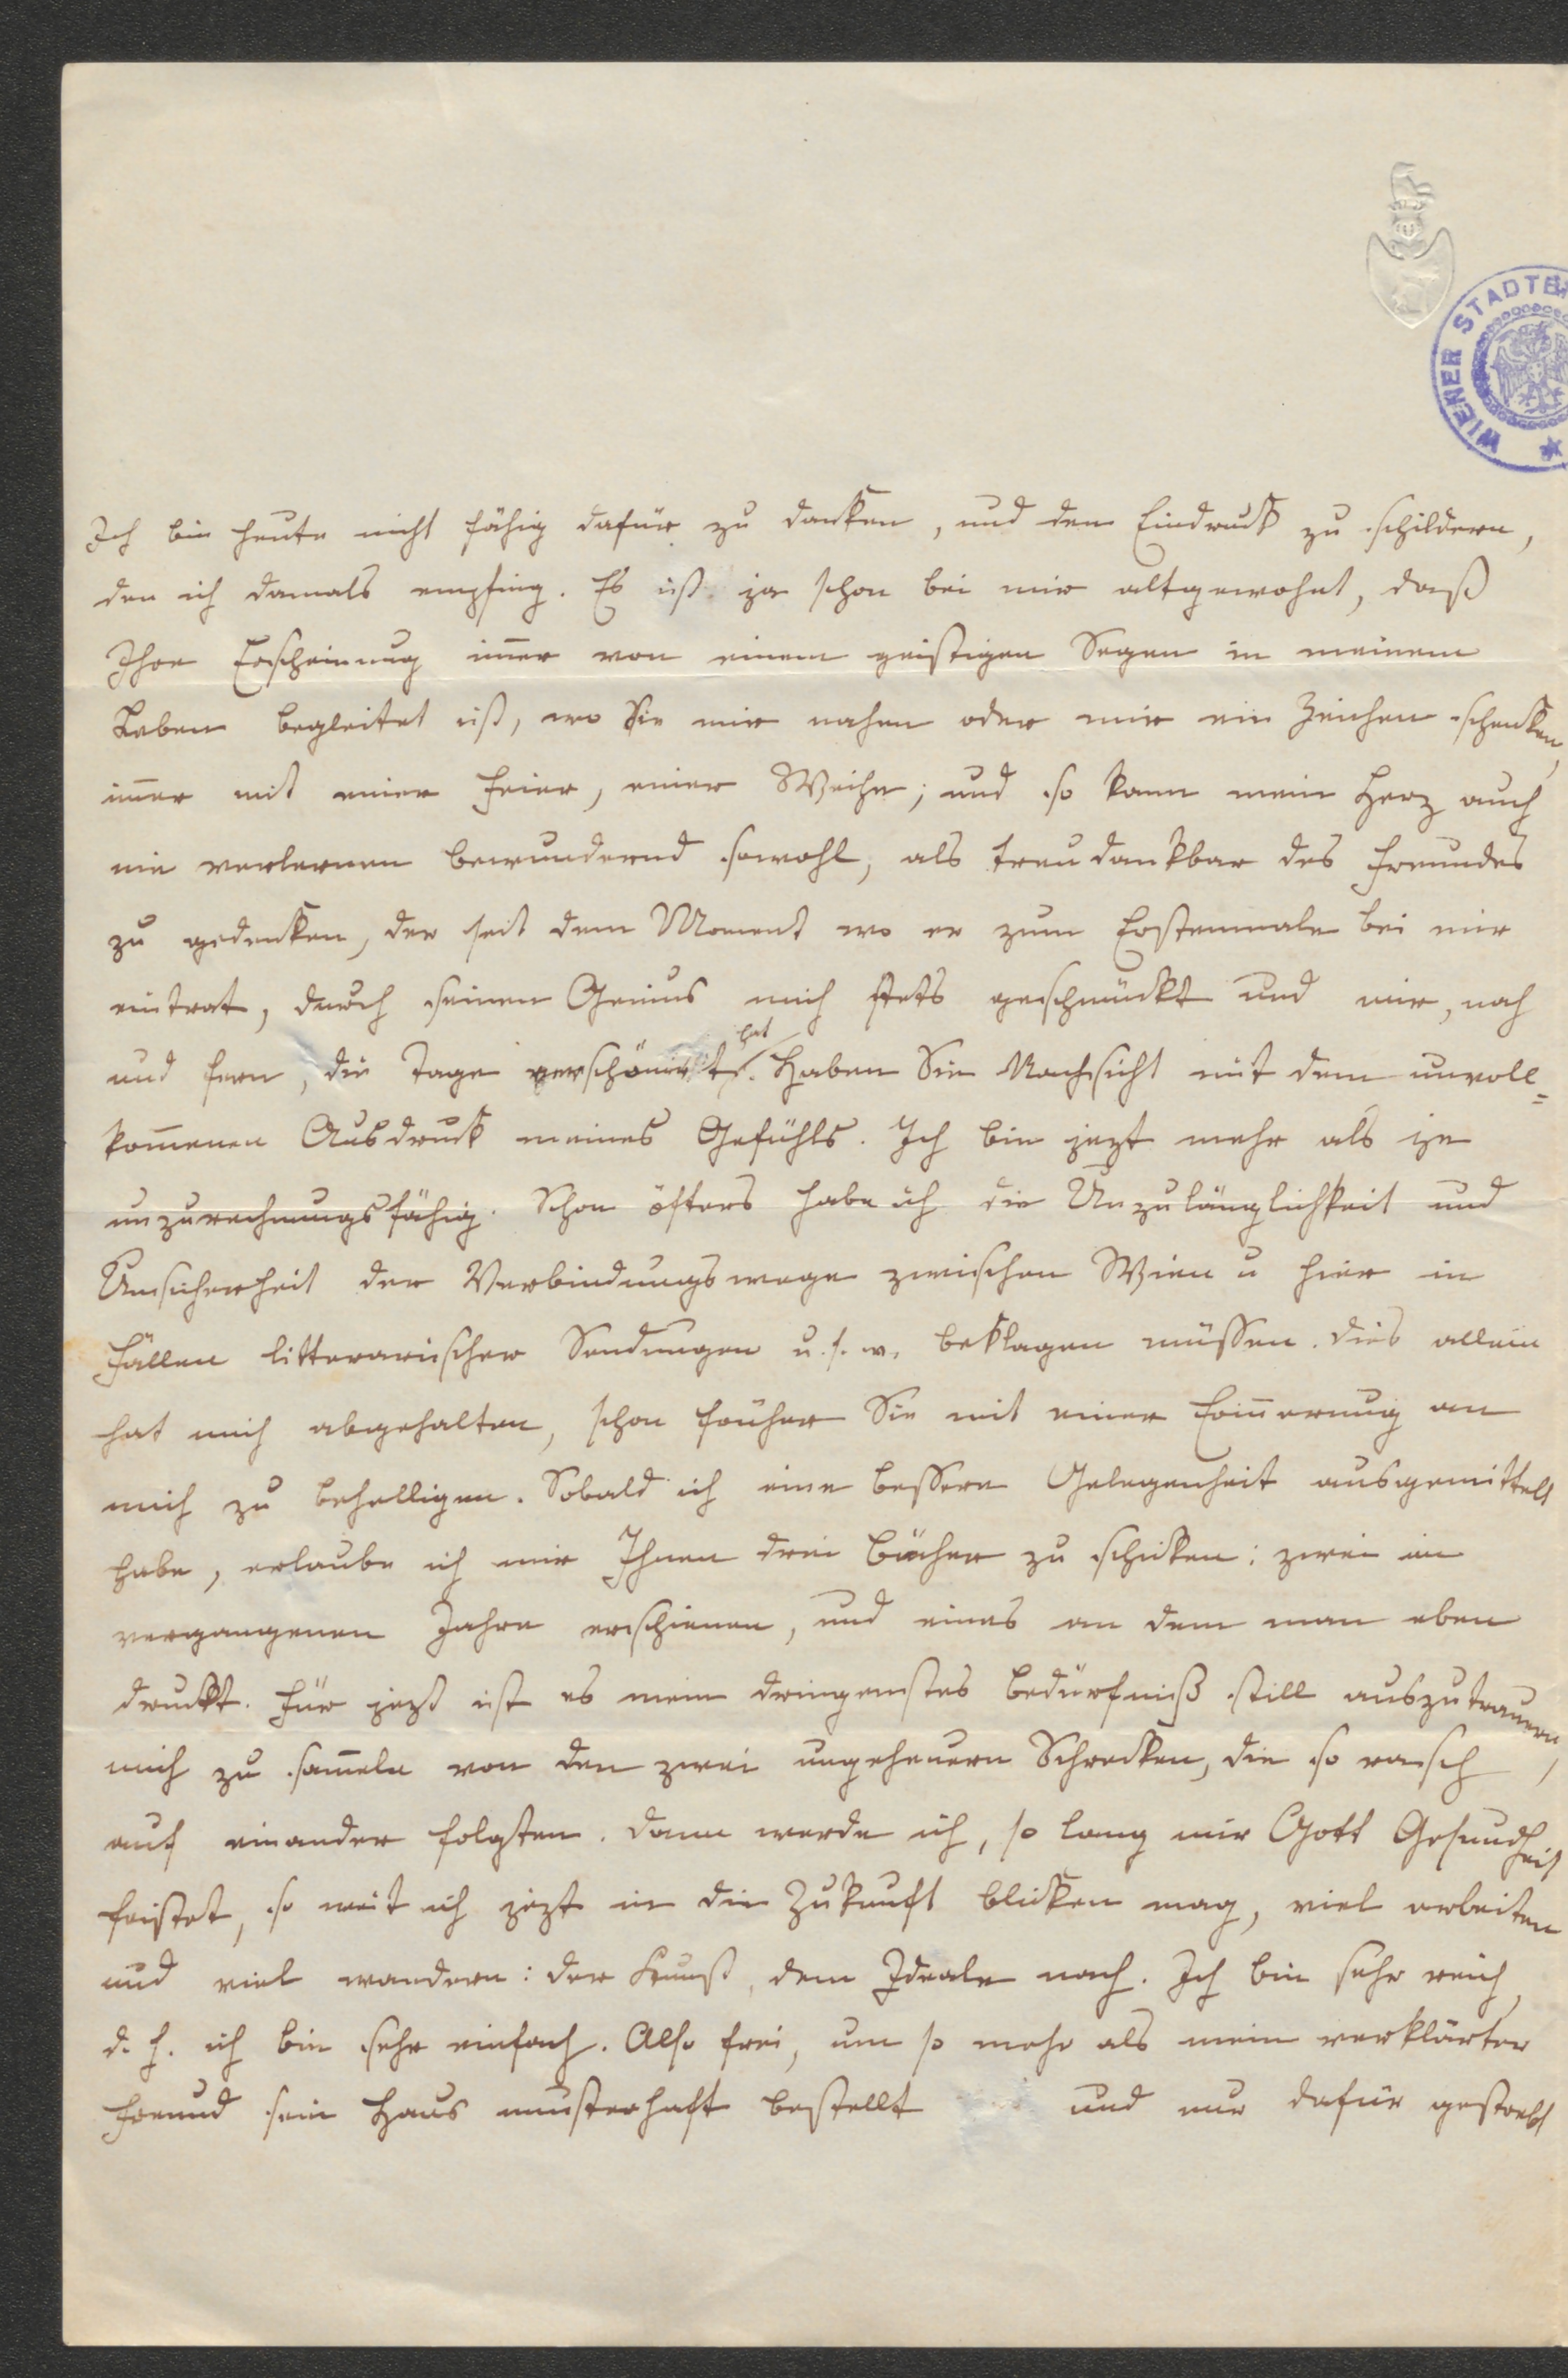 WIENER STADTB
Ich bin heute nicht fähig dafür zu danken, und den Eindruck zu schildern,
den ich damals empfing. Es ist ja schon bei mir altgewohnt, daß
Ihre Erscheinung im̅er von einem geistigen Segen in meinem
Leben begleitet ist, wo Sie mir nahen oder mir ein Zeichen schenken,
im̅er mit einer Feier, einer Weihe; und so kann mein Herz auch
nie verlernen bewundernd sowohl, als treu dankbar des Freundes
zu gedenken, der seit dem Moment wo er zum Erstenmale bei mir
eintrat, durch seinen Genius mich stets geschmückt und mir, nah
und fern, die Tage verschönert hat. Haben Sie Nachsicht mit dem unvoll=
kom̅enen Ausdruck meines Gefühls. Ich bin jezt mehr als je
unzurechnungsfähig. Schon öfters habe ich die Unzulänglichkeit und
Unsicherheit der Verbindungswege zwischen Wien u hier in
Fällen litterarischer Sendungen u.s.w. beklagen müssen. Dies allein
hat mich abgehalten, schon früher Sie mit einer Erin̅erung an
mich zu behelligen. Sobald ich eine bessere Gelegenheit ausgemittelt
habe, erlaube ich mir Ihnen drei Bücher zu schicken: zwei im
vergangenen Jahre erschienen, und eines an dem man eben
druckt. Für jezt ist es mein dringenstes Bedürfniß still auszutrauern,
mich zu sam̅eln von den zwei ungeheuern Schrecken, die so rasch
auf einander folgten. Dann werde ich, so lang mir Gott Gesundheit
fristet, so weit ich jezt in die Zukunft blicken mag, viel arbeiten
und viel wandern: der Kunst, dem Ideale nach. Ich bin sehr reich,
d. h. ich bin sehr einfach. Also frei, um so mehr als mein verklärter
Freund sein Haus musterhaft bestellt und nur dafür gestrebt